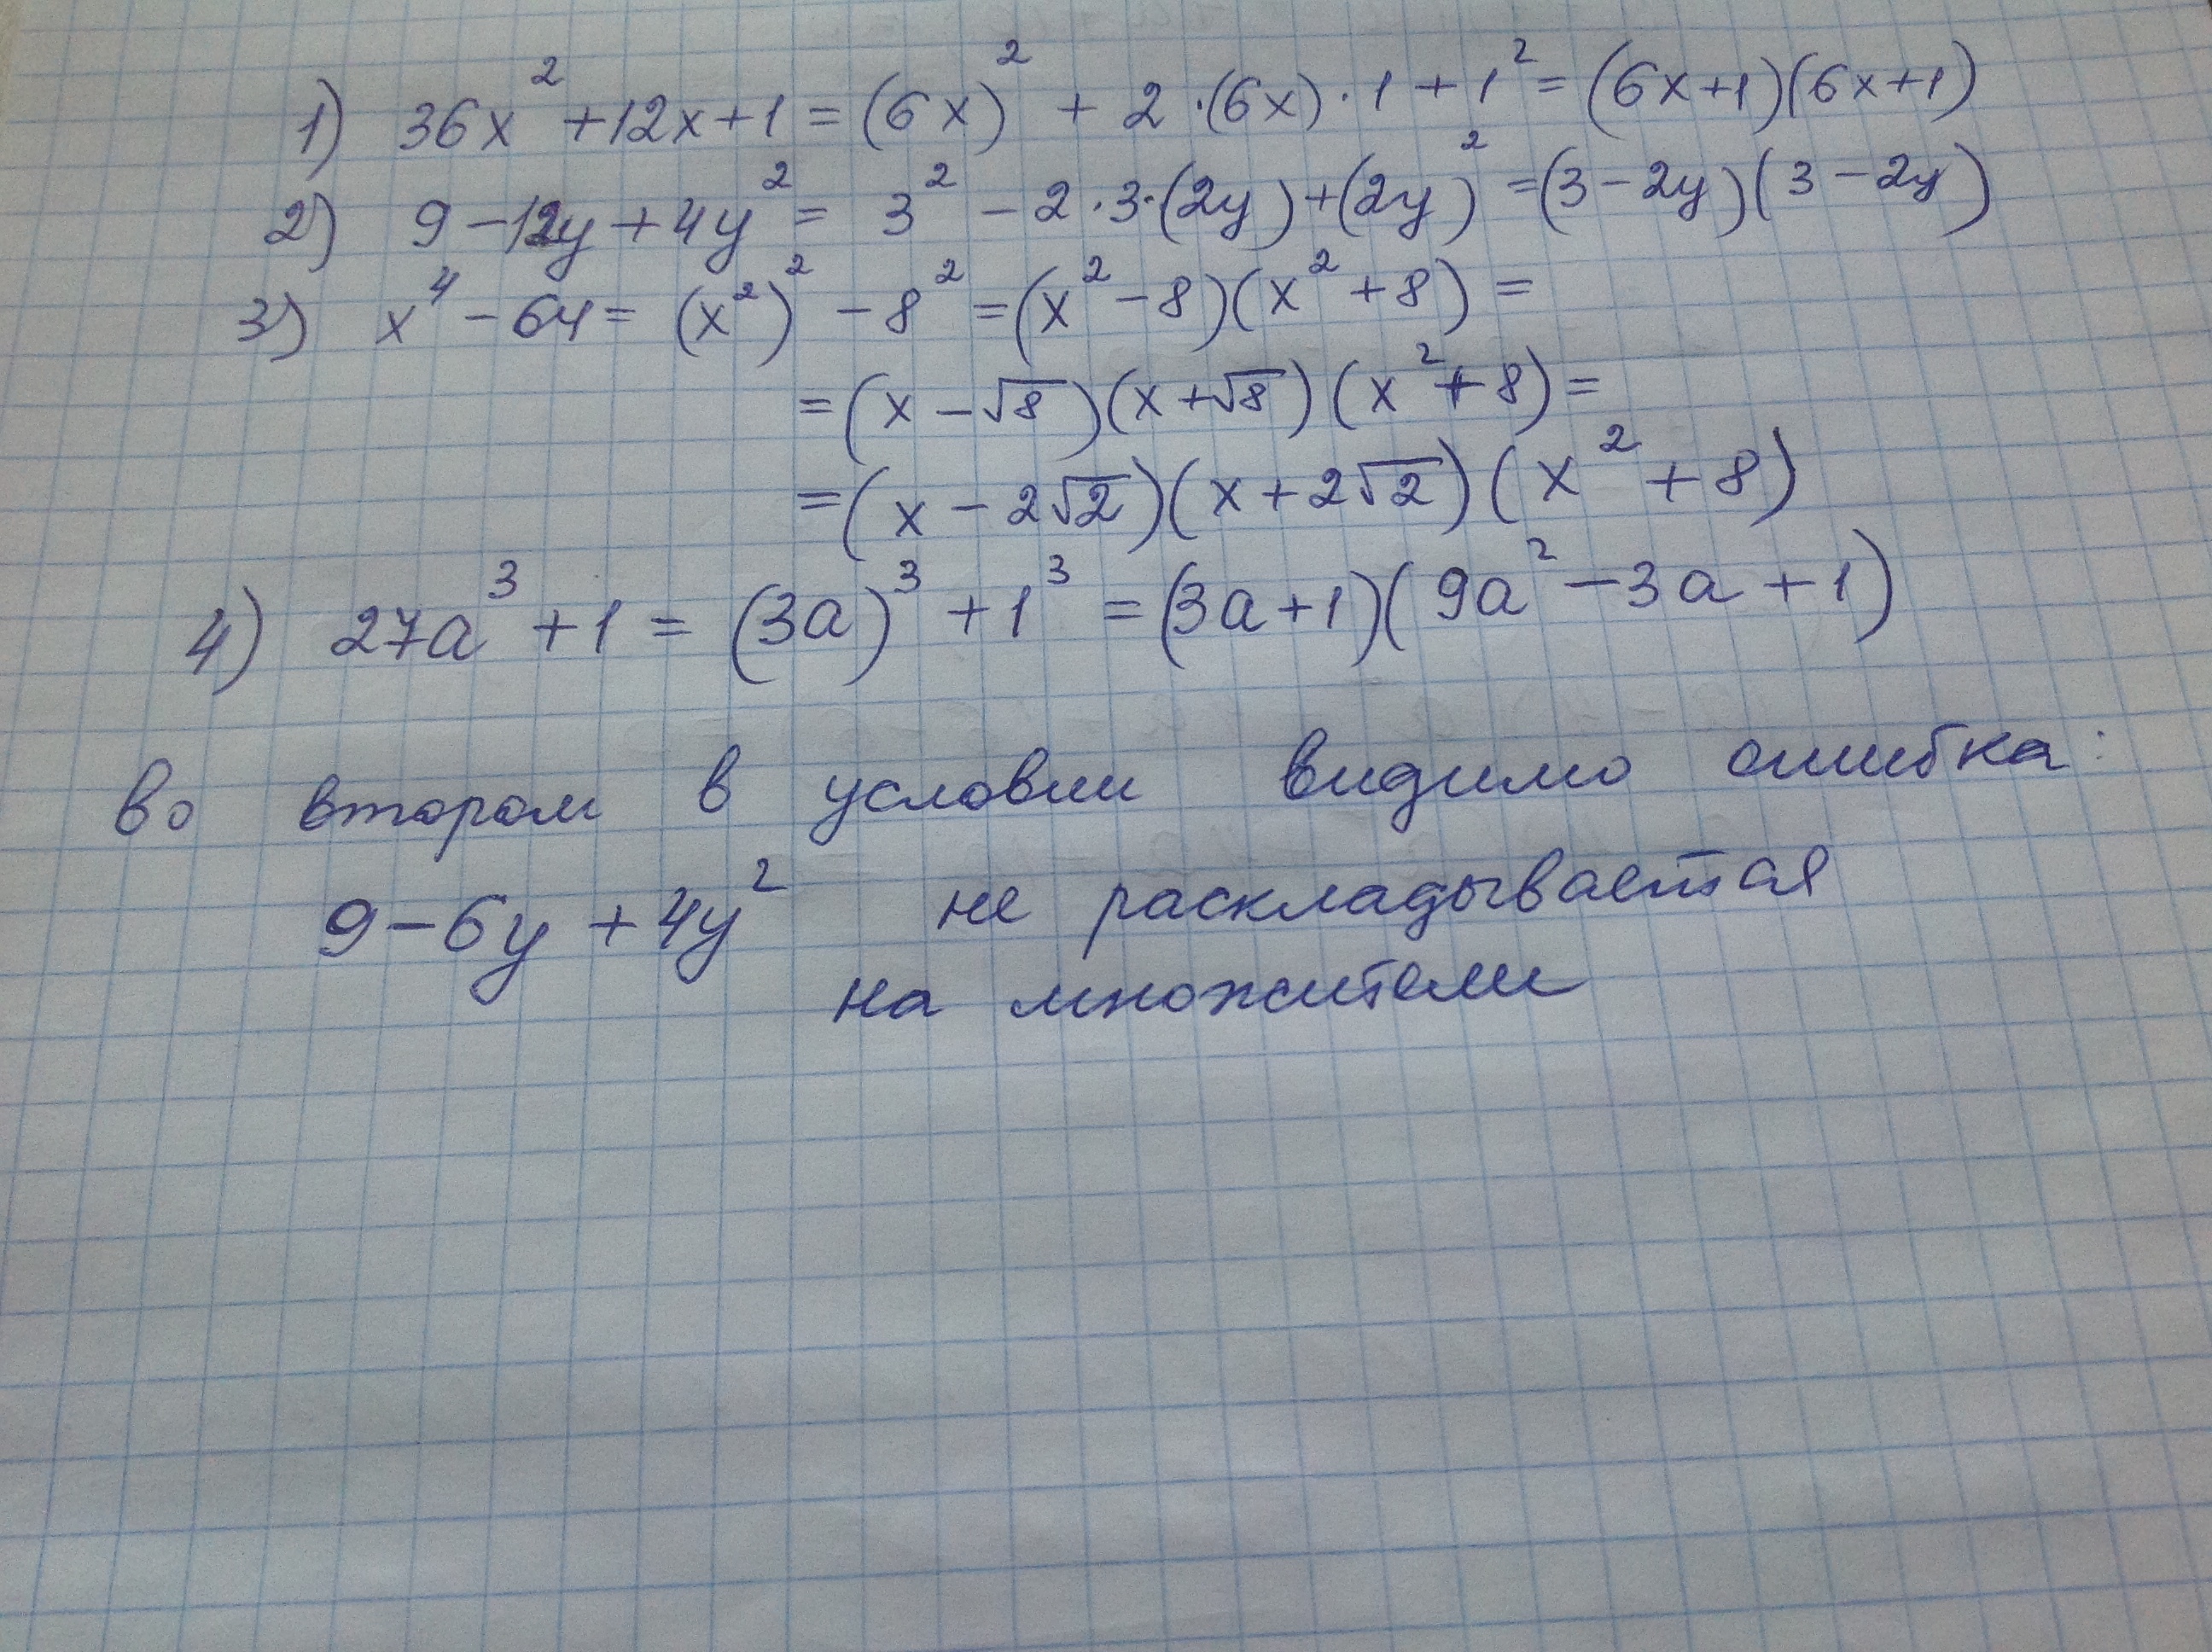 1) 36x² + 12x + 1 = (6x)² + 2 · (6x) · 1 + 1² = (6x+1)(6x+1)
2) 9 - 12y + 4y² = 3² - 2 · 3 · (2y) + (2y)² = (3 - 2y)(3 - 2y)
3) x⁴ - 64 = (x²)² - 8² = (x² - 8)(x² + 8) =
= (x - √8)(x + √8)(x² + 8) =
= (x - 2√2)(x + 2√2)(x² + 8)
4) 27a³ + 1 = (3a)³ + 1³ = (3a + 1)(9a² - 3a + 1)
во втором в условии видимо ошибка:
9 - 6y + 4y² не раскладывается
на множители